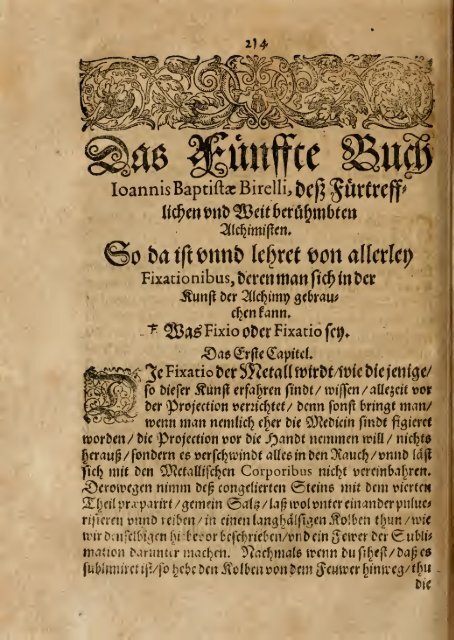 214
Das Fünffte Buch
Ioannis Baptistæ Birelli, deß Fürtreff-
lichen vnd Weit berühmbten
Alchimisten.
So da ist vnnd lehret von allerley
Fixationibus, deren man sich in der
Kunst der Alchimy gebrau-
chen kann.
Was Fixio oder Fixatio sey.
Das Erste Capitel.
DJe Fixatio der Metall wirdt/ wie die jenige/
so dieser Kunst erfahren sindt/ wissen/ allezeit vor
der Projection verzichtet/ denn sonst bringt man/
wenn man nemlich eher die Medicin sindt figieret
worden/ die Projection vor die Handt nemmen will/ nichts
herauß/ sondern es verschwindt alles in den Rauch/ vnnd läst
sich mit den Metallischen Corporibus nicht vereinbahren.
Derowegen nimm deß congelierten Steins mit dem vierten
Theil præparirt/ gemein Saltz/ laß wol vnter einander puluc-
risieren vnnd reiben/ in einen langhälsigen Kolben thun/ wie
wir denselbigen hiebevor beschrieben/ vnd ein Fewer der Subli-
mation darunter machen. Nachmals wenn du sihest/ daß es
sublimiret ist/ so hebe den Kolben von dem Feuwer hinweg/ thu
die